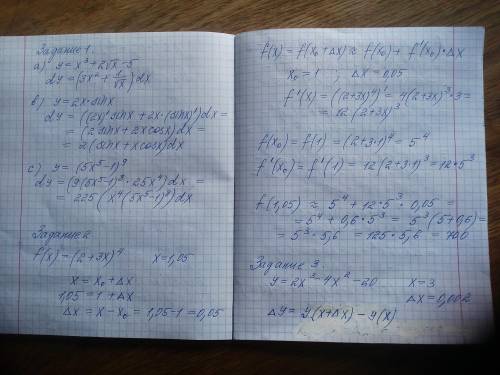 Задание 1.
а) y = x³ + 2√x - 5
dy = (3x² + 1/√x) dx
в) y = 2x · sinx
dy = ((2x)' sinx + 2x · (sinx)') dx =
= (2 sinx + 2x cosx) dx =
= 2(sinx + x cosx) dx
с) y = (5x⁵-1)⁹
dy = (9(5x⁵-1)⁸ · 25x⁴) dx =
= 225 (x⁴ (5x⁵-1)⁸) dx
Задание 2
f(x) - (2+3x)⁴ x = 1,05
x = x₀ + Δx
1,05 = 1 + Δx
Δx = x - x₀ = 1,05 - 1 = 0,05
f(x) = f(x₀ + Δx) ≈ f(x₀) + f'(x₀) · Δx
x₀ = 1 ; Δx = 0,05
f'(x) = ((2+3x)⁴)' = 4(2+3x)³ · 3 =
= 12 (2+3x)³
f(x₀) = f(1) = (2+3·1)⁴ = 5⁴
f'(x₀) = f'(1) = 12(2+3·1)³ = 12·5³
f(1,05) ≈ 5⁴ + 12·5³ · 0,05 =
= 5⁴ + 0,6 · 5³ = 5³(5+0,6) =
= 5³ · 5,6 = 125 · 5,6 = 700
Задание 3
y = 2x³ - 4x² - 20 x = 3
Δx = 0,002
Δy = y(x+Δx) - y(x)